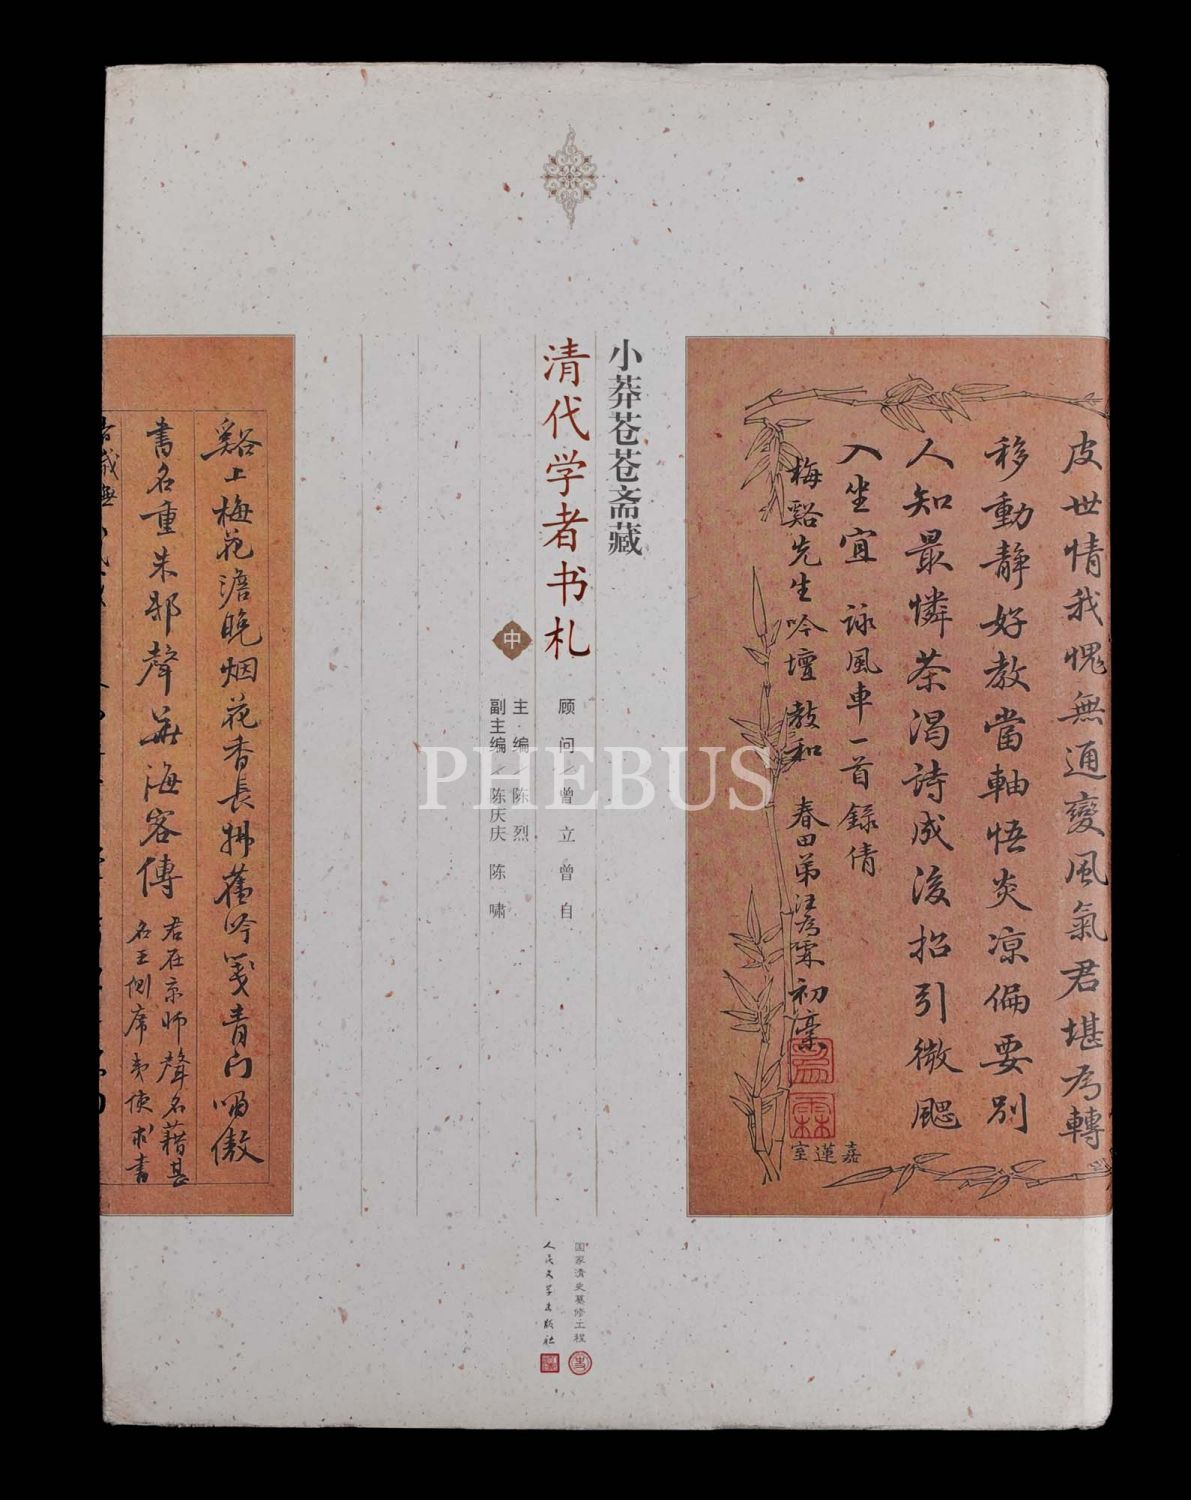 小莽苍苍斋藏
清代学者书札
中
顾问 曾立 曾自
主编 陈烈
副主编 陈庆庆 陈啸
皮世情我愧無通變風氣君堪为轉
移動静好教當軸悟炎凉偏要别
人知最憐茶渴詩成後招引微颸
入坐宜 詠風車一首錄倩
梅谿先生吟壇 教和 春田弟汪為霖初藁
為
霖
嘉蓮室
谿上梅花澹晚烟花香長拂舊吟箋青门啸傲
書名重朱邸聲華海客傳
君在京师聲名藉甚
名王侧席夷使求書
国家清史纂修工程
人民文学出版社
PHEBUS